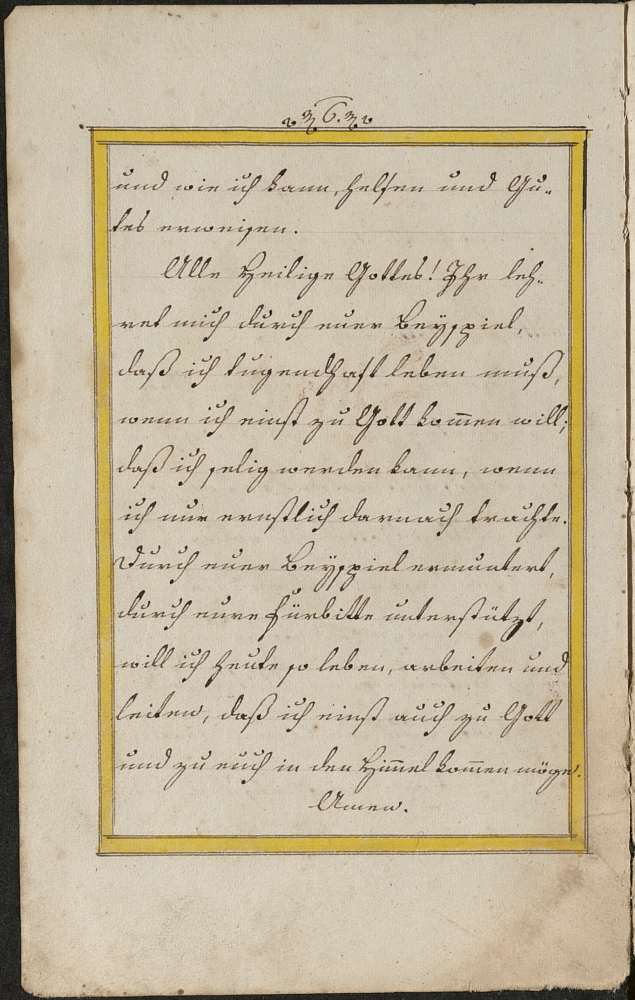 6.
und wie ich kann, helfen und Gu-
tes erweisen.
Alle Heilige Gottes! Ihr leh-
ret mich durch euer Beyspiel,
daß ich tugendhaft leben muß,
wenn ich einst zu Gott kom̄en will;
daß ich selig werden kann, wenn
ich nur ernstlich darnach trachte.
Durch euer Beyspiel ermuntert,
durch eure Fürbitte unterstützt,
will ich heute so leben, arbeiten und
leiten, daß ich einst auch zu Gott
und zu euch in den Him̄el kom̄en möge.
Amen.